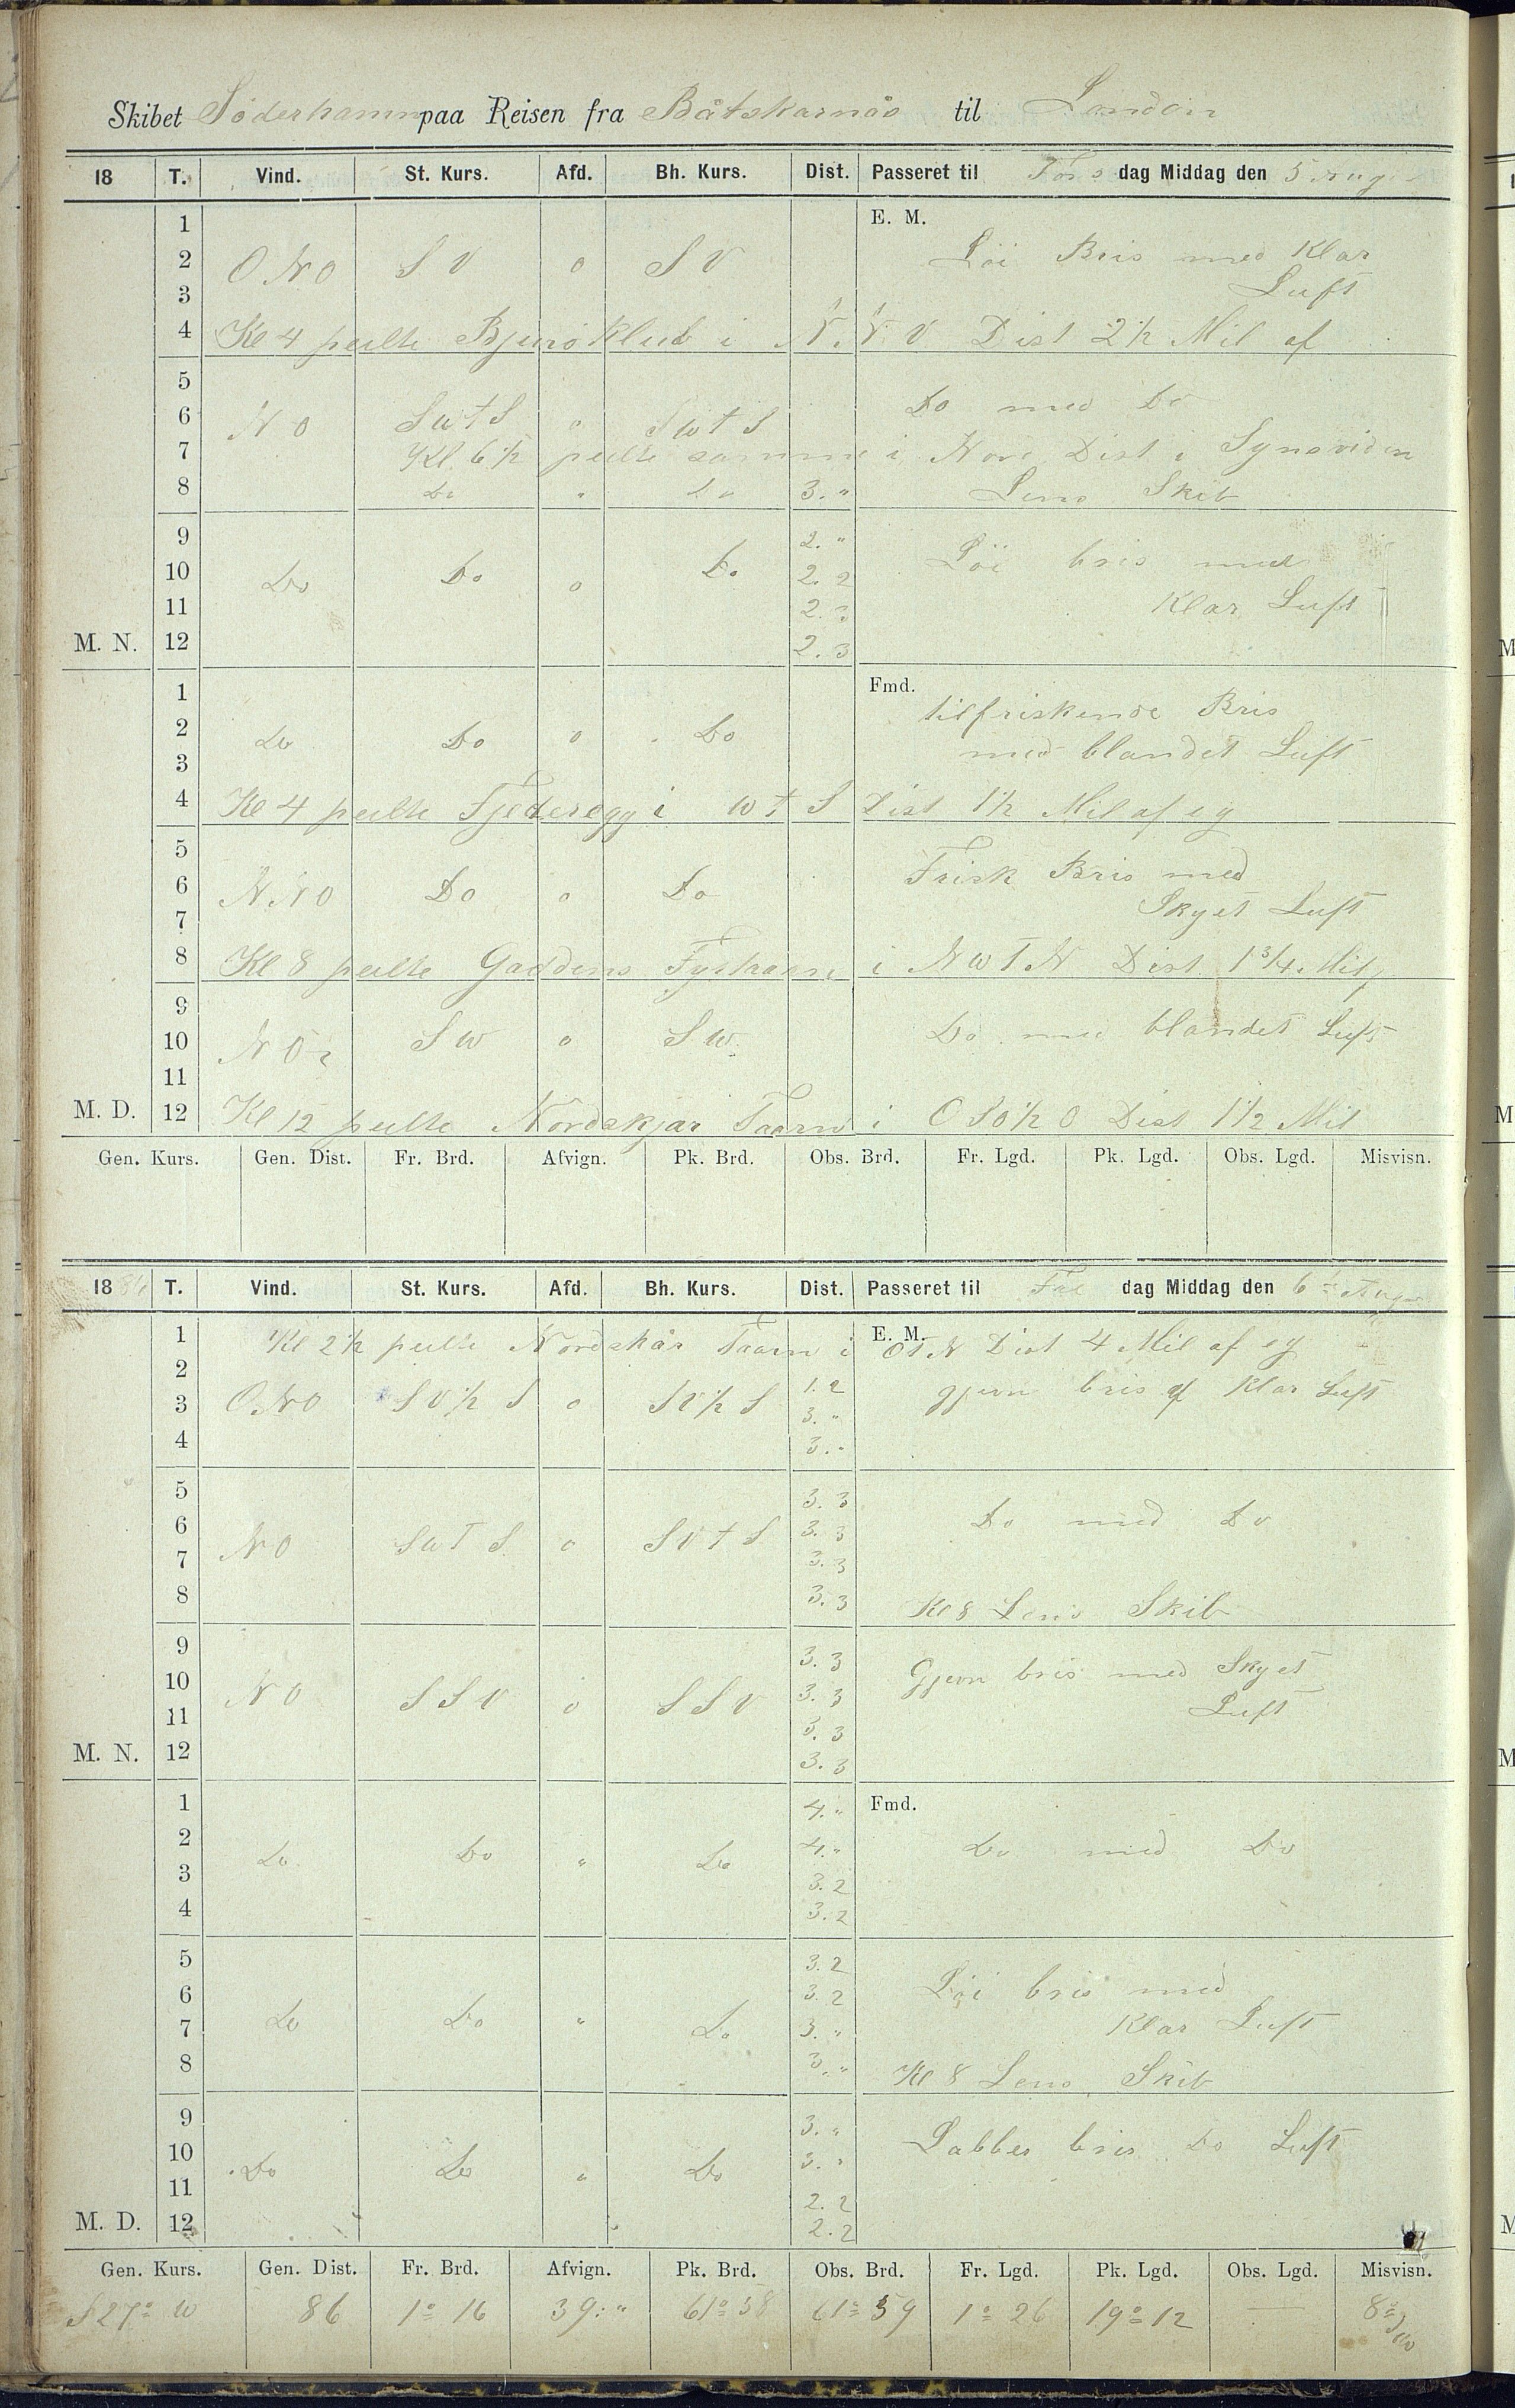 Skibet Söderhamn paa Reisen fra Båtskarnäs til London
18 T. Vind. St. Kurs. Afd. Bh. Kurs. Dist. Passeret til Tors dag Middag den 5 Aug
1 E. M.
2 O.NO S V o S V Löi Bris med Klar
3 Luft
4 Kl 4 peilte Bjuröklub i N. N. V Dist 2 1/2 Mil af
5
6 N O SwtS o SwtS Do med Do
7 Kl 6 1/2 peilte samme i Nord Dist i Synsviden
8 Do " Do 3. " Lens Skib
9 2. "
10 Do Do o Do 2. 2 Löi bris med
11 2. 3 Klar Luft
M. N. 12 2. 3
1 Fmd. tilfriskende Bris
2 Do Do o Do
3 med blandet Luft
4 Kl 4 peilte Fjederegg i W t S Dist 1 1/2 Mil af eg
5
6 N.NO Do o Do Frisk Bris med
7 Skyet Luft
8 Kl 8 peilte Gaddens Fyrtaarn i NWTN Dist 1 3/4 Mil
9
10 NO S W o S W. Do med blandet Luft
11
M. D. 12 Kl 12 peilte Nordskjar Taarn i OSO 1/2 O Dist 1 1/2 Mil
Gen. Kurs. Gen. Dist. Fr. Brd. Afvign. Pk. Brd. Obs. Brd. Fr. Lgd. Pk. Lgd. Obs. Lgd. Misvisn.
18 T. Vind. St. Kurs. Afd. Bh. Kurs. Dist. Passeret til Fre dag Middag den 6te Aug
1 Kl 2 1/2 peilte Nordskär Taarn i E. M. OtN Dist 4 Mil af eg
2 1. 2
3 O.NO SV 1/2 S o SV 1/2 S 3. " gjevn bris af Klar Luft
4 3. "
5 3. 3
6 NO SWTS o SVtS 3. 3 Do med Do
7 3. 3
8 3. 3 Kl 8 Lens Skib
9 3. 3
10 NO SSV o SSV 3. 3 Gjevn bris med Skyet
11 3. 3 Luft
M. N. 12 3. 3
1 4. " Fmd.
2 Do Do " Do 4. " Do med Do
3 3. 2
4 3. 2
5 3. 2
6 3. 2 Löi bris med
7 Do Do " Do 3. " Klar Luft
8 3. " Kl 8 Lens Skib
9 3. "
10 Do Do " Do 3. " Labber bris Do Luft
11 2. 2
M. D. 12 2. 2
Gen. Kurs. Gen. Dist. Fr. Brd. Afvign. Pk. Brd. Obs. Brd. Fr. Lgd. Pk. Lgd. Obs. Lgd. Misvisn.
S 27° W 86 1° 16 39. " 61° 58 61° 59 1° 26 19° 12 — 8°